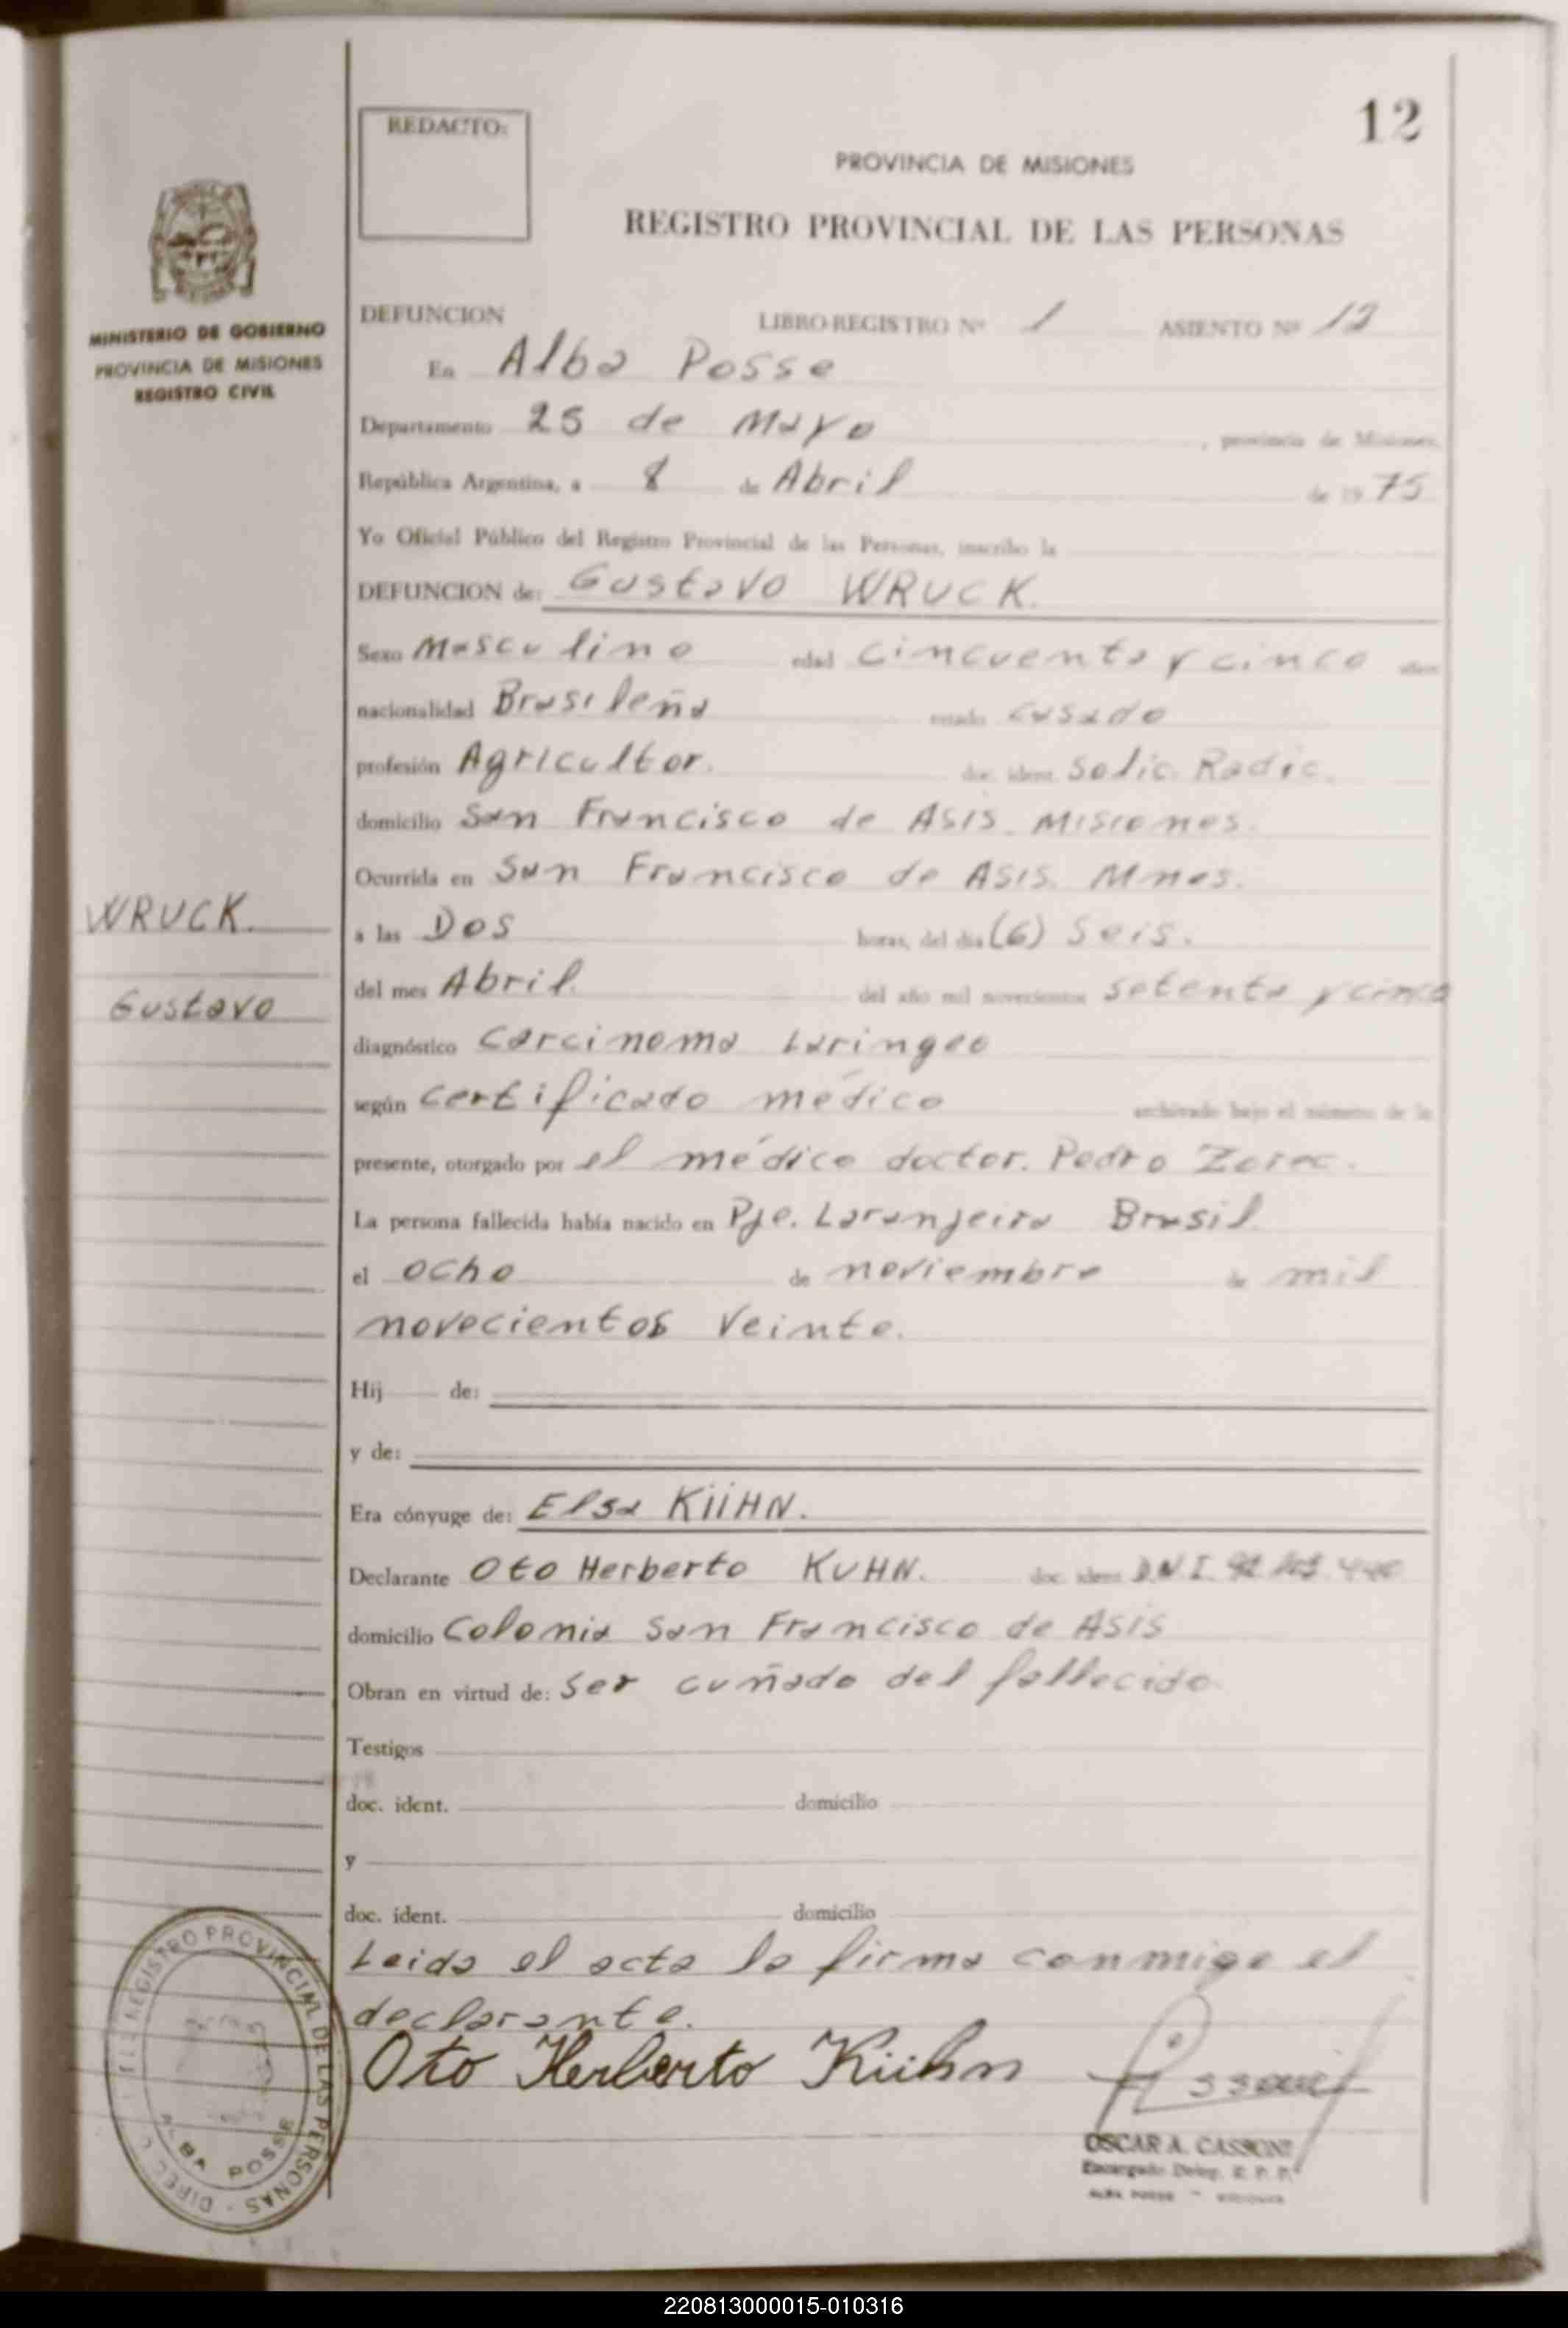 12
REDACTO:
PROVINCIA DE MISIONES
REGISTRO PROVINCIAL DE LAS PERSONAS
MINISTERIO DE GOBIERNO
PROVINCIA DE MISIONES
REGISTRO CIVIL
DEFUNCION LIBRO-REGISTRO Nº 1 ASIENTO Nº 12
En Alba Posse
Departamento 25 de Mayo , provincia de Misiones,
República Argentina, a 8 de Abril de 19 75
Yo Oficial Público del Registro Provincial de las Personas, inscribo la
DEFUNCION de: Gustavo WRUCK.
Sexo Masculino edad Cincuenta y cinco años
nacionalidad Brasileña estado casado
profesión Agricultor. doc. ident. Solic. Radic.
domicilio San Francisco de ASIS. Misiones.
Ocurrida en San Francisco de ASIS. Mnes.
WRUCK.
a las Dos horas, del día (6) Seis.
del mes Abril. del año mil novecientos setenta y cinco
Gustavo
diagnóstico Carcinoma Laringeo
según certificado médico archivado bajo el número de la
presente, otorgado por el médico doctor. Pedro Zorec.
La persona fallecida había nacido en Pje. Laranjeira Brasil
el ocho de noviembre de mil
novecientos Veinte.
Hij de:
y de:
Era cónyuge de: Elsa KÜHN.
Declarante Oto Herberto KUHN. doc. ident. D.N.I.
domicilio Colonia San Francisco de ASIS
Obran en virtud de: Ser cuñado del fallecido.
Testigos
doc. ident. domicilio
y
doc. ident. domicilio
Leida el acta la firma conmigo el
declarante.
Oto Herberto Kühn
REGISTRO PROVINCIAL DE LAS PERSONAS
ALBA POSSE
OSCAR A. CASSONI
Encargado Deleg. R. P. P.
ALBA POSSE - MISIONES
220813000015-010316